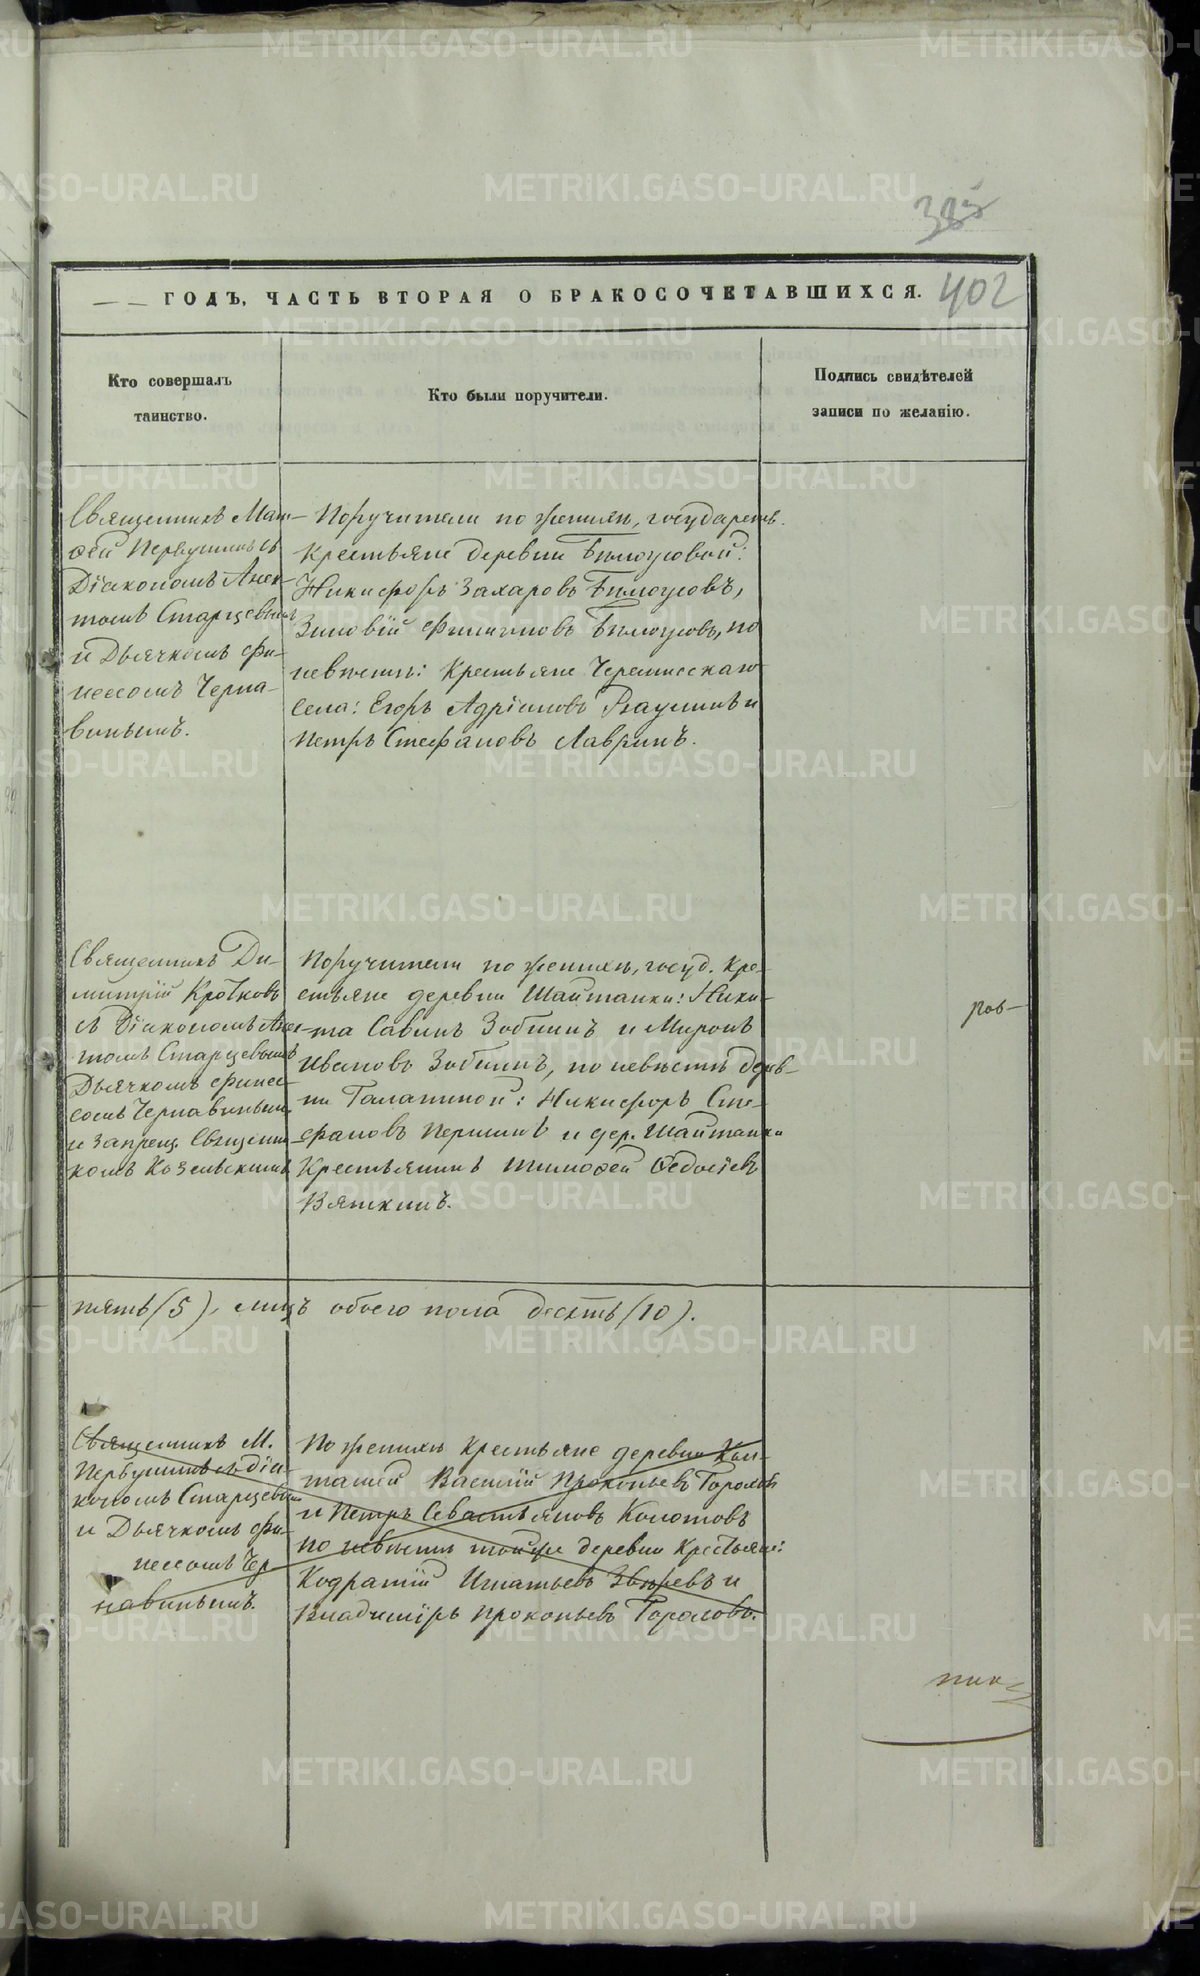 385
— — ГОДЪ, ЧАСТЬ ВТОРАЯ О БРАКОСОЧЕТАВШИХСЯ. 402
Кто совершалъ
таинство.
Кто были поручители.
Подпись свидѣтелей
записи по желанію.
Священникъ Мат-
ѳей Первушинъ съ
Діакономъ Анек-
томъ Старцевымъ
и Дьячкомъ Фи-
неесомъ Черна-
винымъ.
Поручители по женихѣ, государств.
Крестьяне деревни Бѣлоусовой:
Никифоръ Захаровъ Бѣлоусовъ,
Зиновій Филиповъ Бѣлоусовъ, по
невѣстѣ: Крестьяне Черемисскаго
Села: Егоръ Адріановъ и
Петръ Стефановъ Лавринъ.
Священникъ Ди-
митрій Кротковъ
съ Діакономъ Анек-
томъ Старцевымъ
Дьячкомъ Финее-
сомъ Чернавинымъ
и Запрещ. Священни-
комъ Козельскимъ
Поручители по женихѣ, госуд. Кре-
стьяне деревни Шайтанки: Ники-
та Савинъ Зобнинъ и Миронъ
Ивановъ Зобнинъ, по невѣстѣ дерев-
ни Галаниной: Никифоръ Сте-
фановъ Першинъ и дер. Шайтанки
Крестьянинъ Тимоѳей Ѳедосѣевъ
Вяткинъ.
ров-
пять (5), лицъ обоего пола десять (10).
Священникъ М.
Первушинъ съ діа-
кономъ Старцевымъ
и Дьячкомъ Фи-
неесомъ Чер
навинымъ.
По женихѣ Крестьяне деревни
Василій Прокопьевъ
и Петръ Севастьяновъ Колотовъ
по невѣстѣ той же деревни Крестьяне:
Кодратій Игнатьевъ Звѣревъ и
Владиміръ Прокопьевъ
METRIKI.GASO-URAL.RU